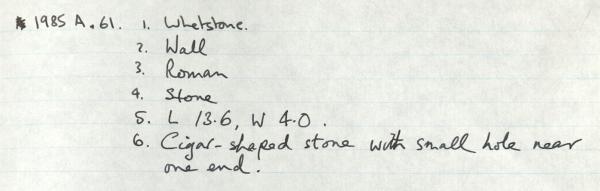 * 1985 A.61. 1. Whetstone.
2. Wall
3. Roman
4. Stone
5. L 13.6, W 4.0.
6. Cigar-shaped stone with small hole near
one end.